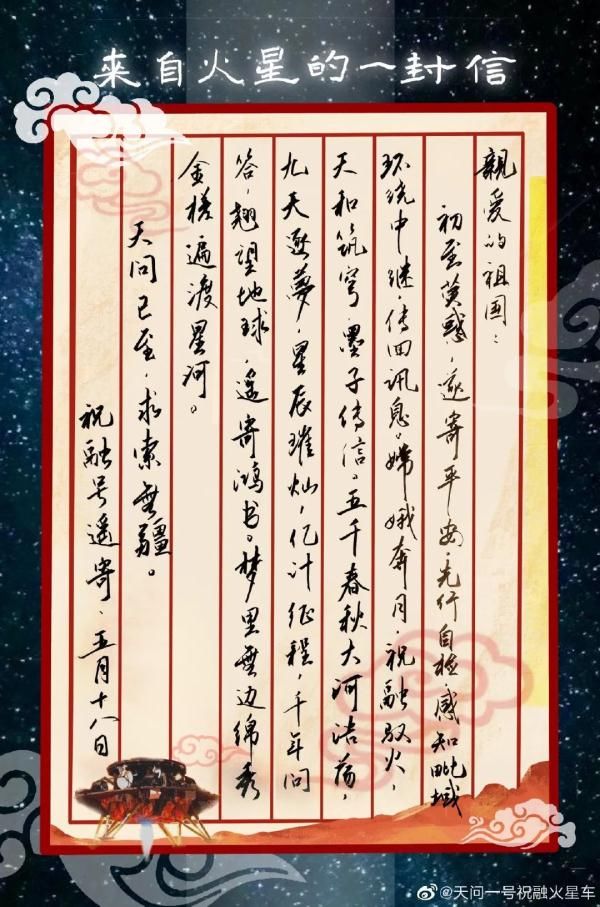 来自火星的一封信
親爱的祖国：
初至荧惑，遥寄平安，先行自检，感知毗域
环绕中继，传回讯息。嫦娥奔月，祝融驭火，
天和筑穹，墨子传信。五千春秋大河浩荡，
九天逐夢，星辰璀灿，亿计征程，千年问
答，翘望地球，遥寄鸿书。梦里無边绵秀
金槎遍渡星河。
天问已至，求索無疆。
祝融号遥寄、五月十八日
@天问一号祝融火星车